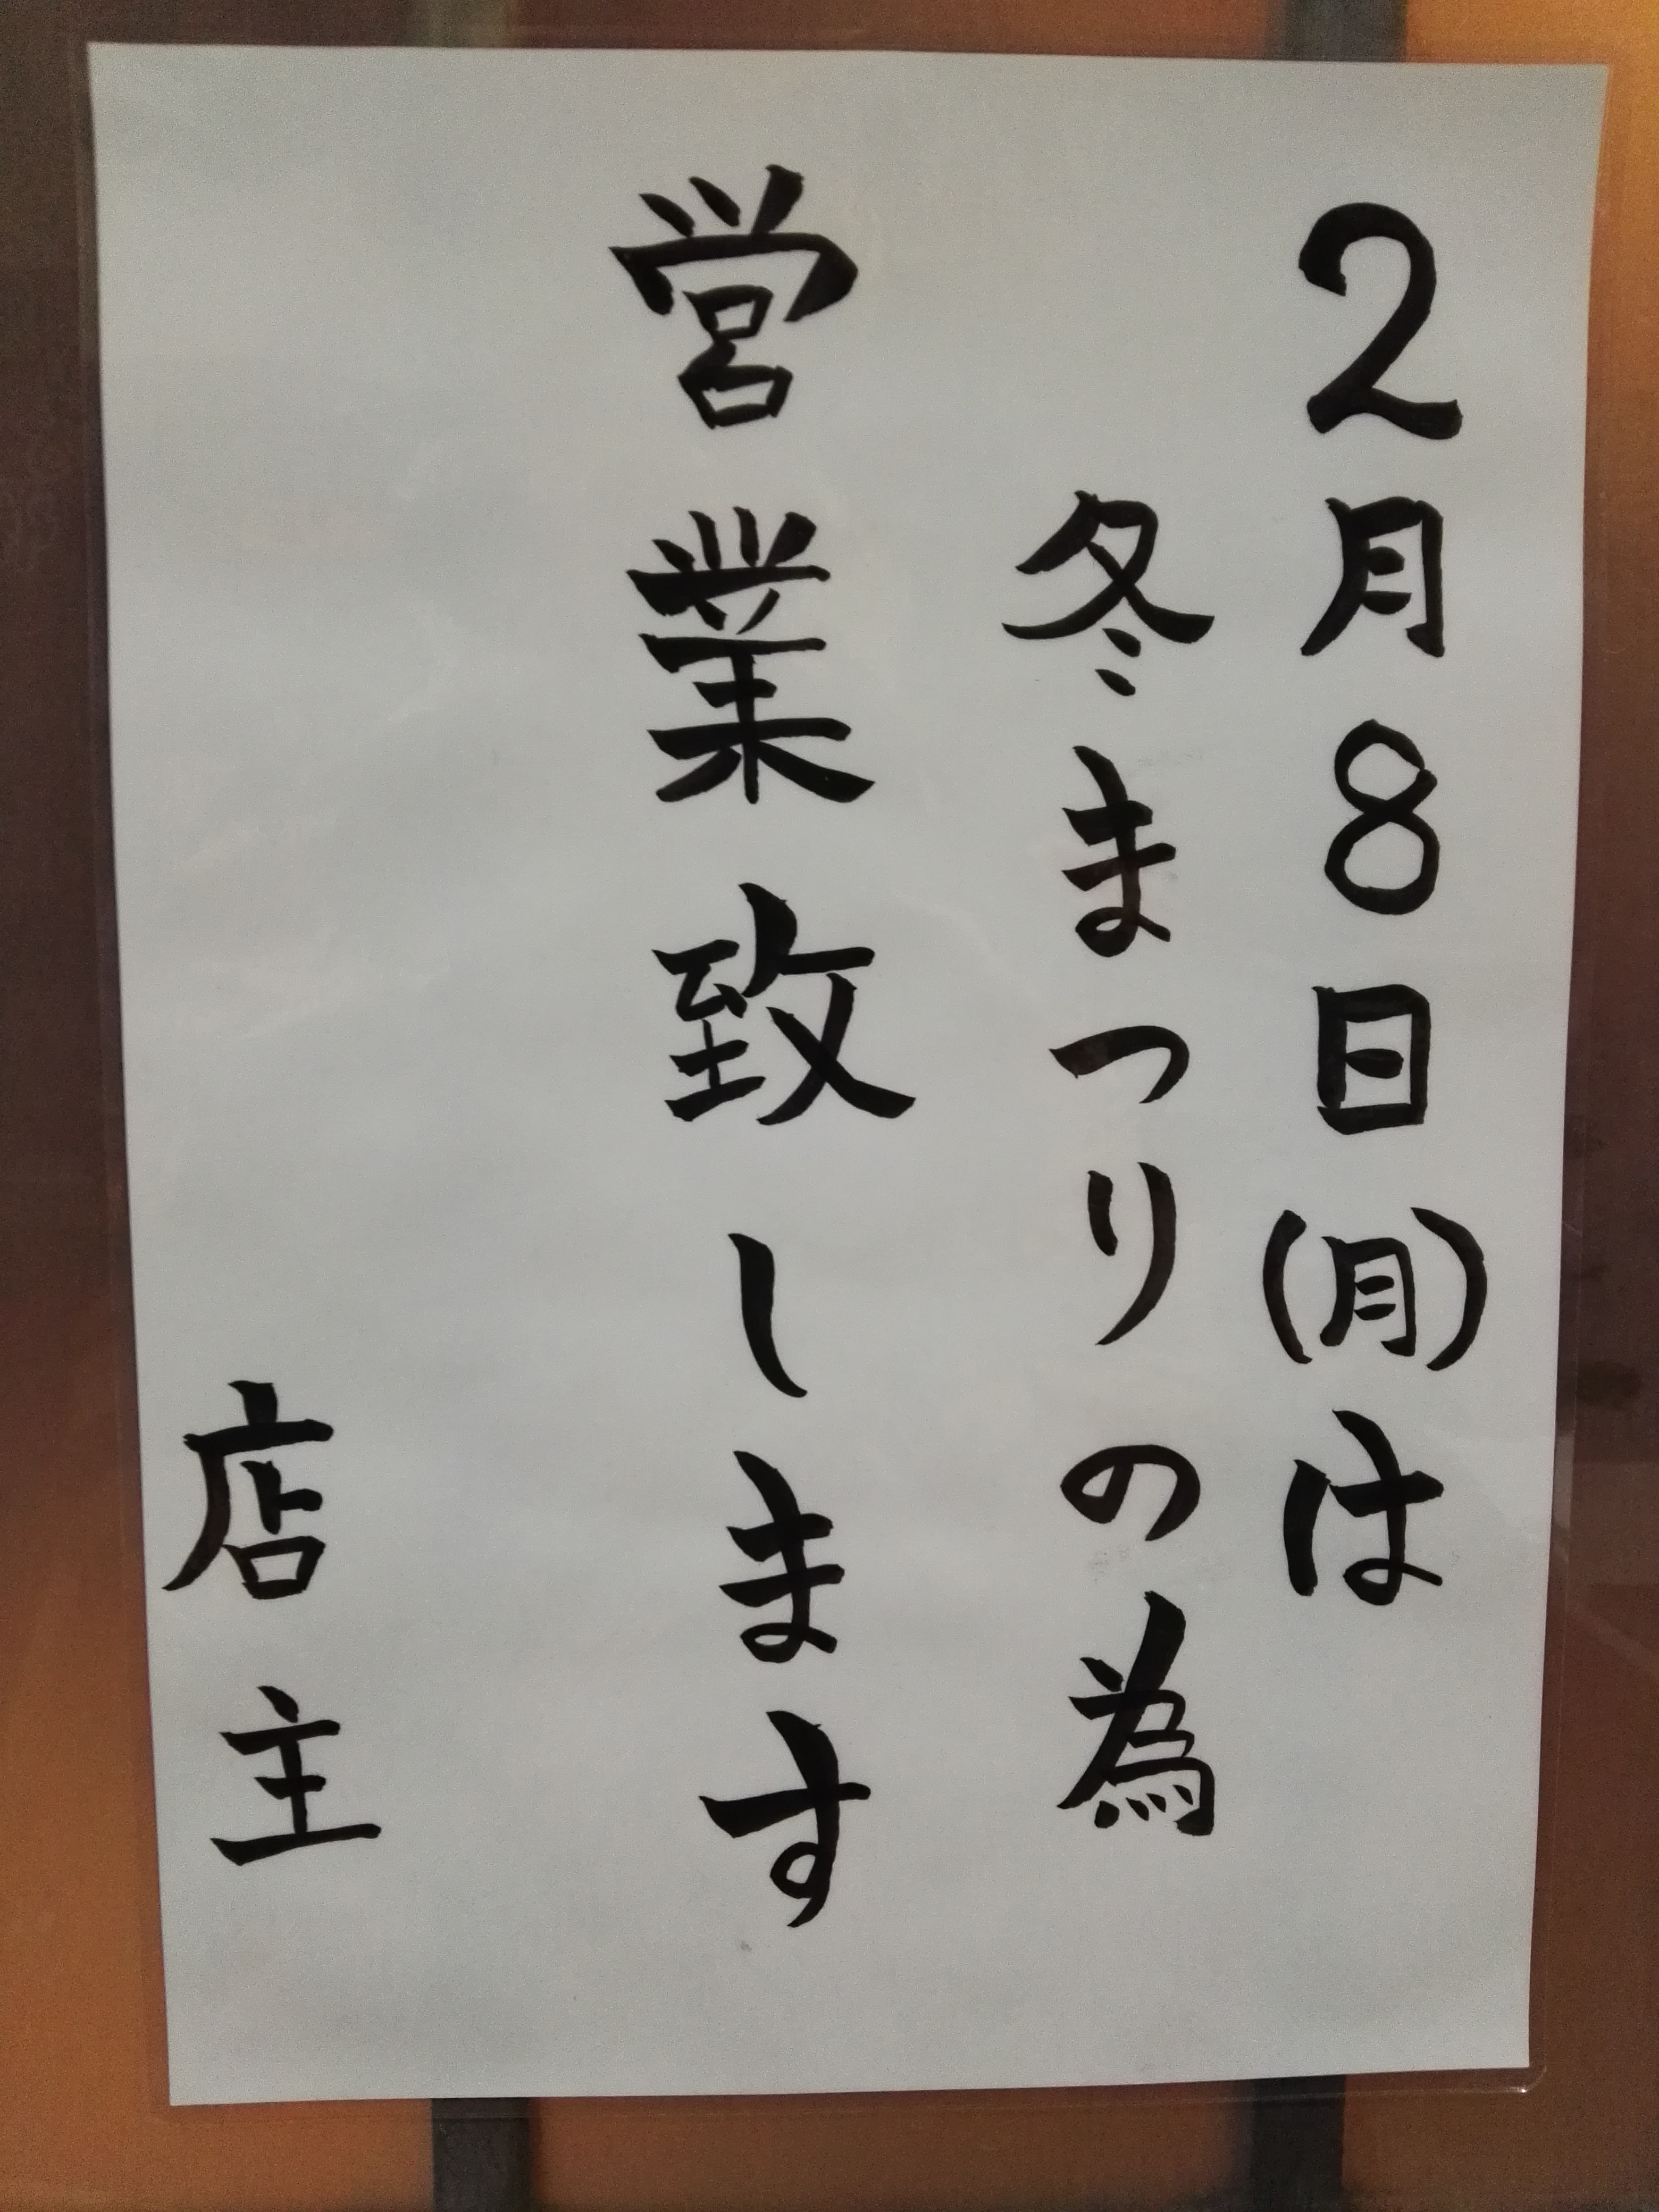 2月8日(月)は
冬まつりの為
営業致します
店主